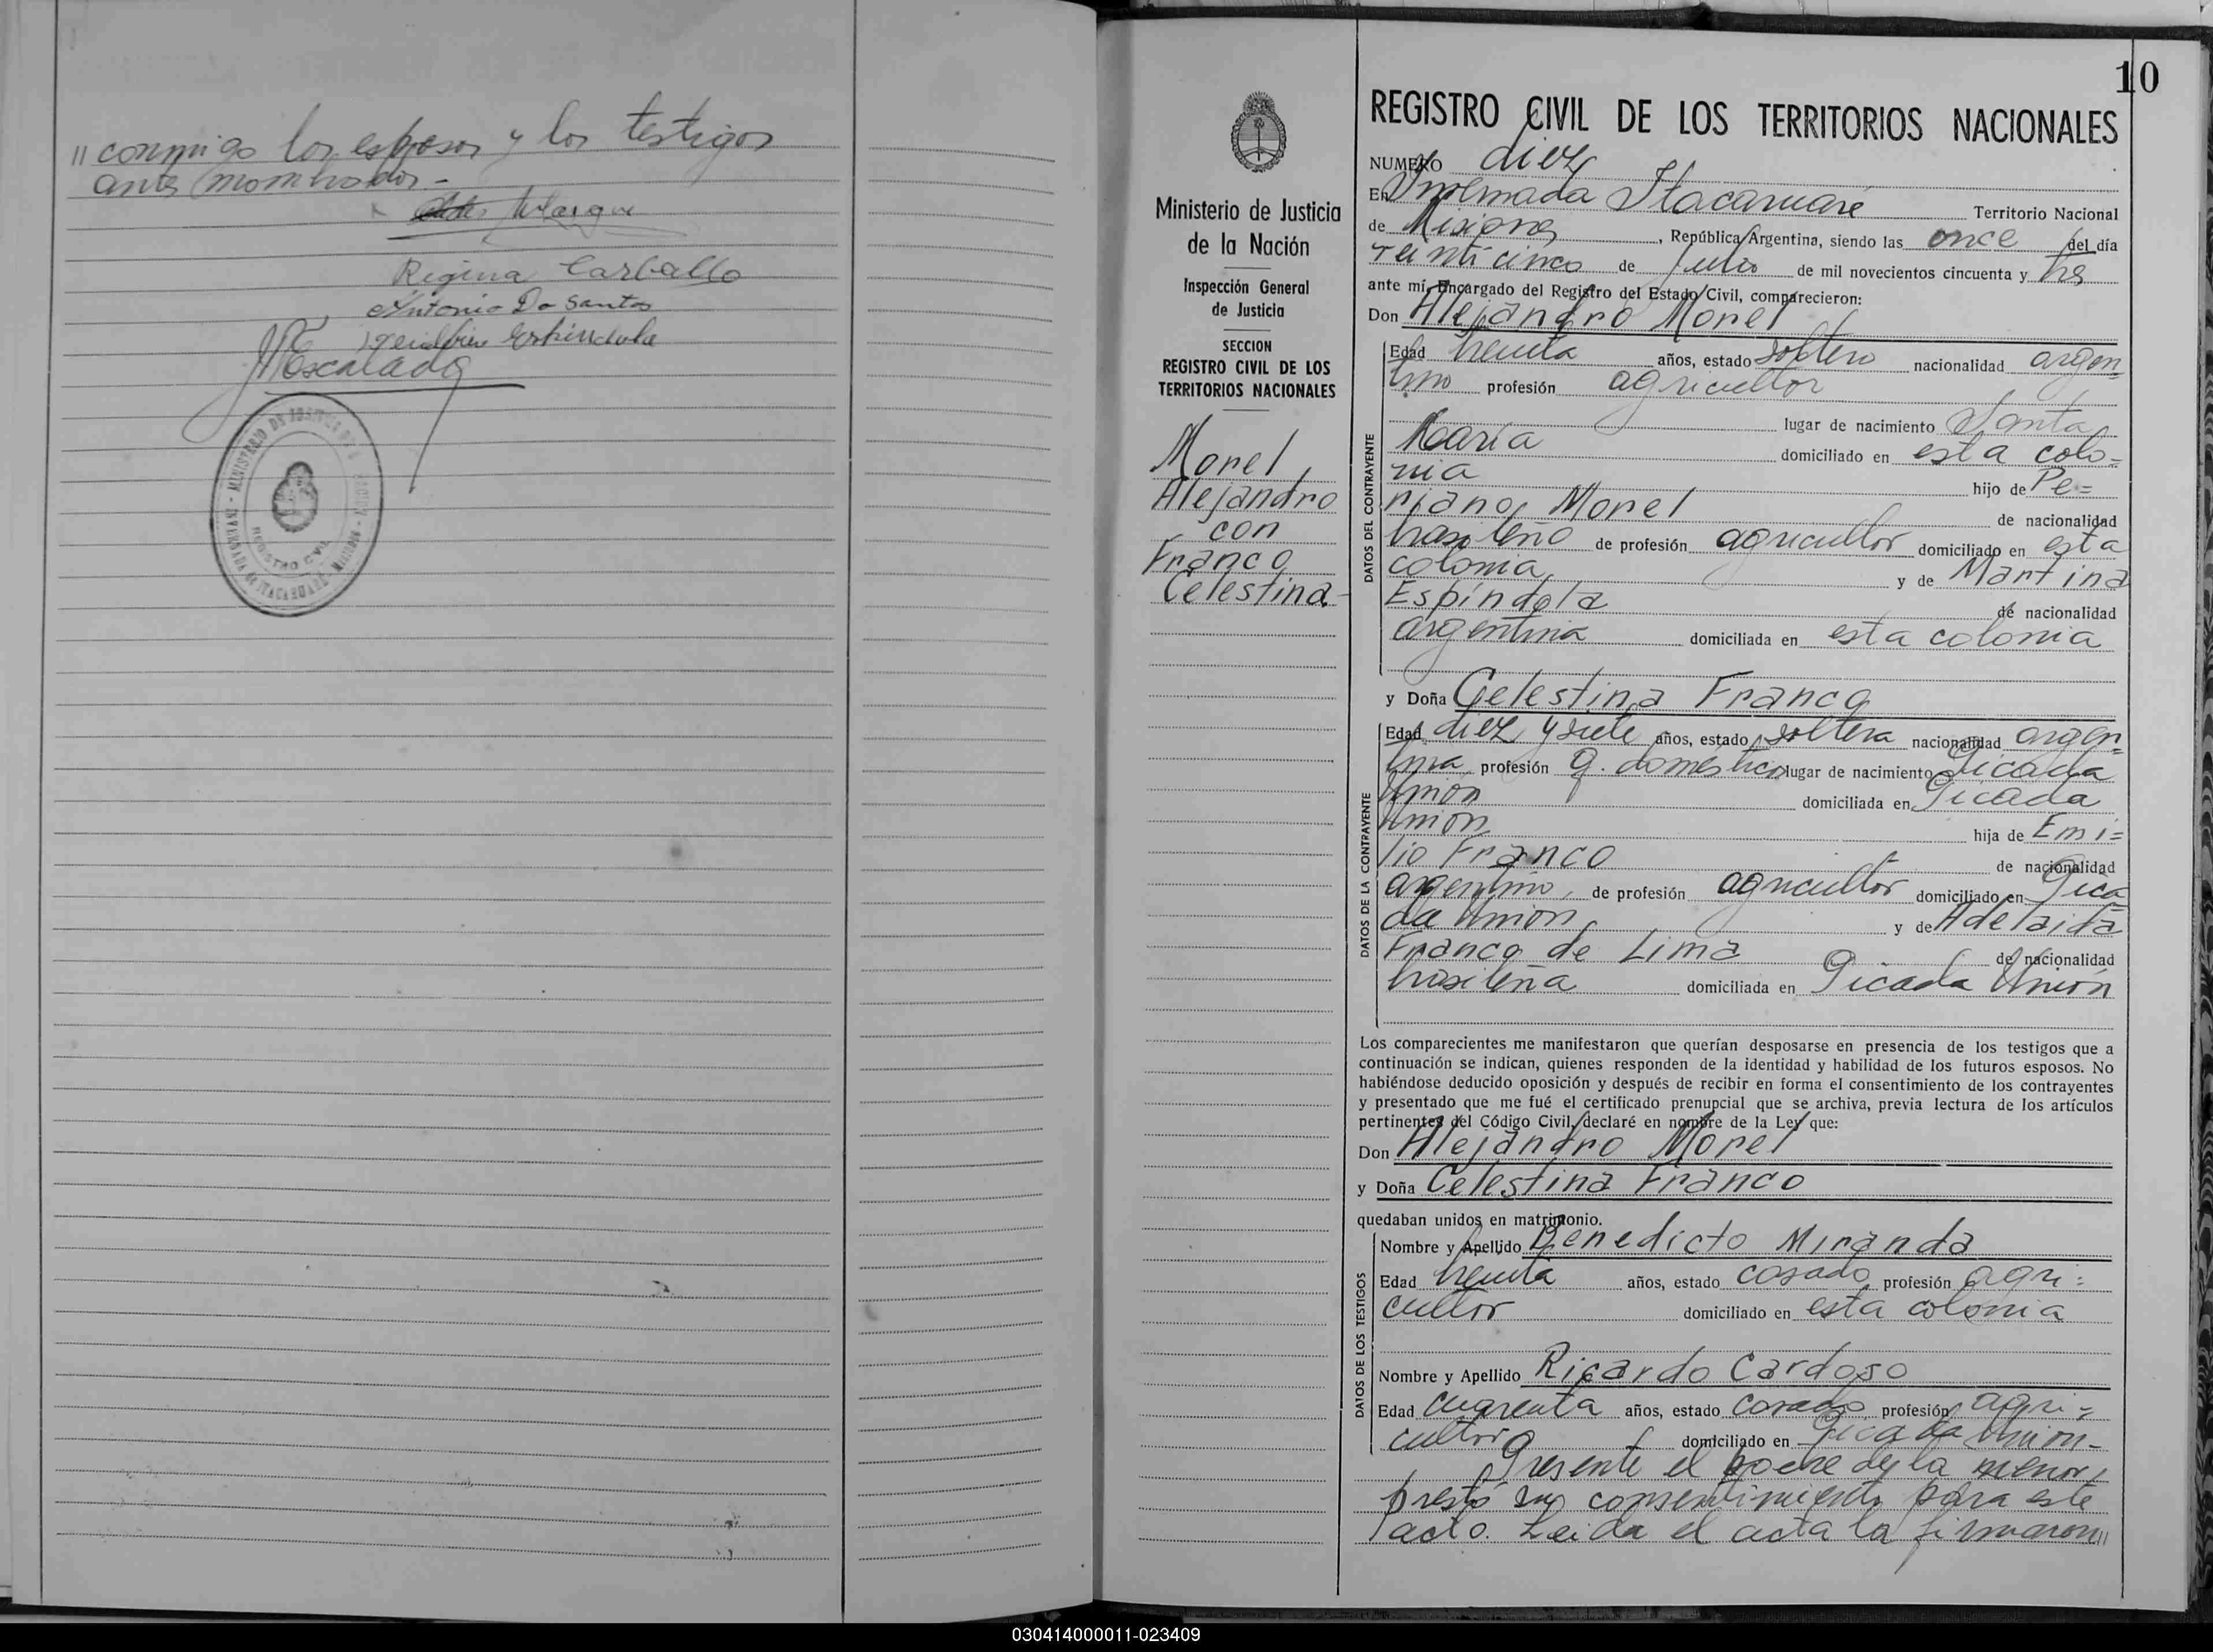 " conmigo los esposos y los testigos
antes nombrados.-
Regina Carballo
Antonio Do Santos
Espindula
Escalada
10
REGISTRO CIVIL DE LOS TERRITORIOS NACIONALES
Ministerio de Justicia
de la Nación
Inspección General
de Justicia
SECCION
REGISTRO CIVIL DE LOS
TERRITORIOS NACIONALES
Morel,
Alejandro
con
Franco
Celestina.
NUMERO diez
En Itacaruaré Territorio Nacional
de Misiones, República Argentina, siendo las once del día
veinticinco de Julio de mil novecientos cincuenta y tres
ante mí, Encargado del Registro del Estado Civil, comparecieron:
Don Alejandro Morel
DATOS DEL CONTRAYENTE
Edad treinta años, estado soltero nacionalidad argen=
tino profesión agricultor
lugar de nacimiento Santa
María domiciliado en esta colo=
nia hijo de Pe=
riano Morel de nacionalidad
brasileño de profesión agricultor domiciliado en esta
colonia, y de Martina
Espíndola de nacionalidad
argentina domiciliada en esta colonia
y Doña Celestina Franco
DATOS DE LA CONTRAYENTE
Edad diez y siete años, estado soltera nacionalidad argen=
tina profesión q. domésticos lugar de nacimiento Picada
Unión domiciliada en Picada
Unión hija de Emi=
lio Franco de nacionalidad
argentino, de profesión agricultor domiciliado en Pica
da Unión y de Adelaida
Franco de Lima de nacionalidad
brasileña domiciliada en Picada Unión
Los comparecientes me manifestaron que querían desposarse en presencia de los testigos que a
continuación se indican, quienes responden de la identidad y habilidad de los futuros esposos. No
habiéndose deducido oposición y después de recibir en forma el consentimiento de los contrayentes
y presentado que me fué el certificado prenupcial que se archiva, previa lectura de los artículos
pertinentes del Código Civil, declaré en nombre de la Ley que:
Don Alejandro Morel
y Doña Celestina Franco
quedaban unidos en matrimonio.
DATOS DE LOS TESTIGOS
Nombre y Apellido Benedicto Miranda
Edad treinta años, estado casado, profesión agri=
cultor domiciliado en esta colonia
Nombre y Apellido Ricardo Cardoso
Edad cuarenta años, estado casado, profesión agri=
cultor domiciliado en Picada Unión-
Presente el padre de la menor,
prestó su consentimiento para este
acto. Leida el acta la firmaron "
030414000011-023409